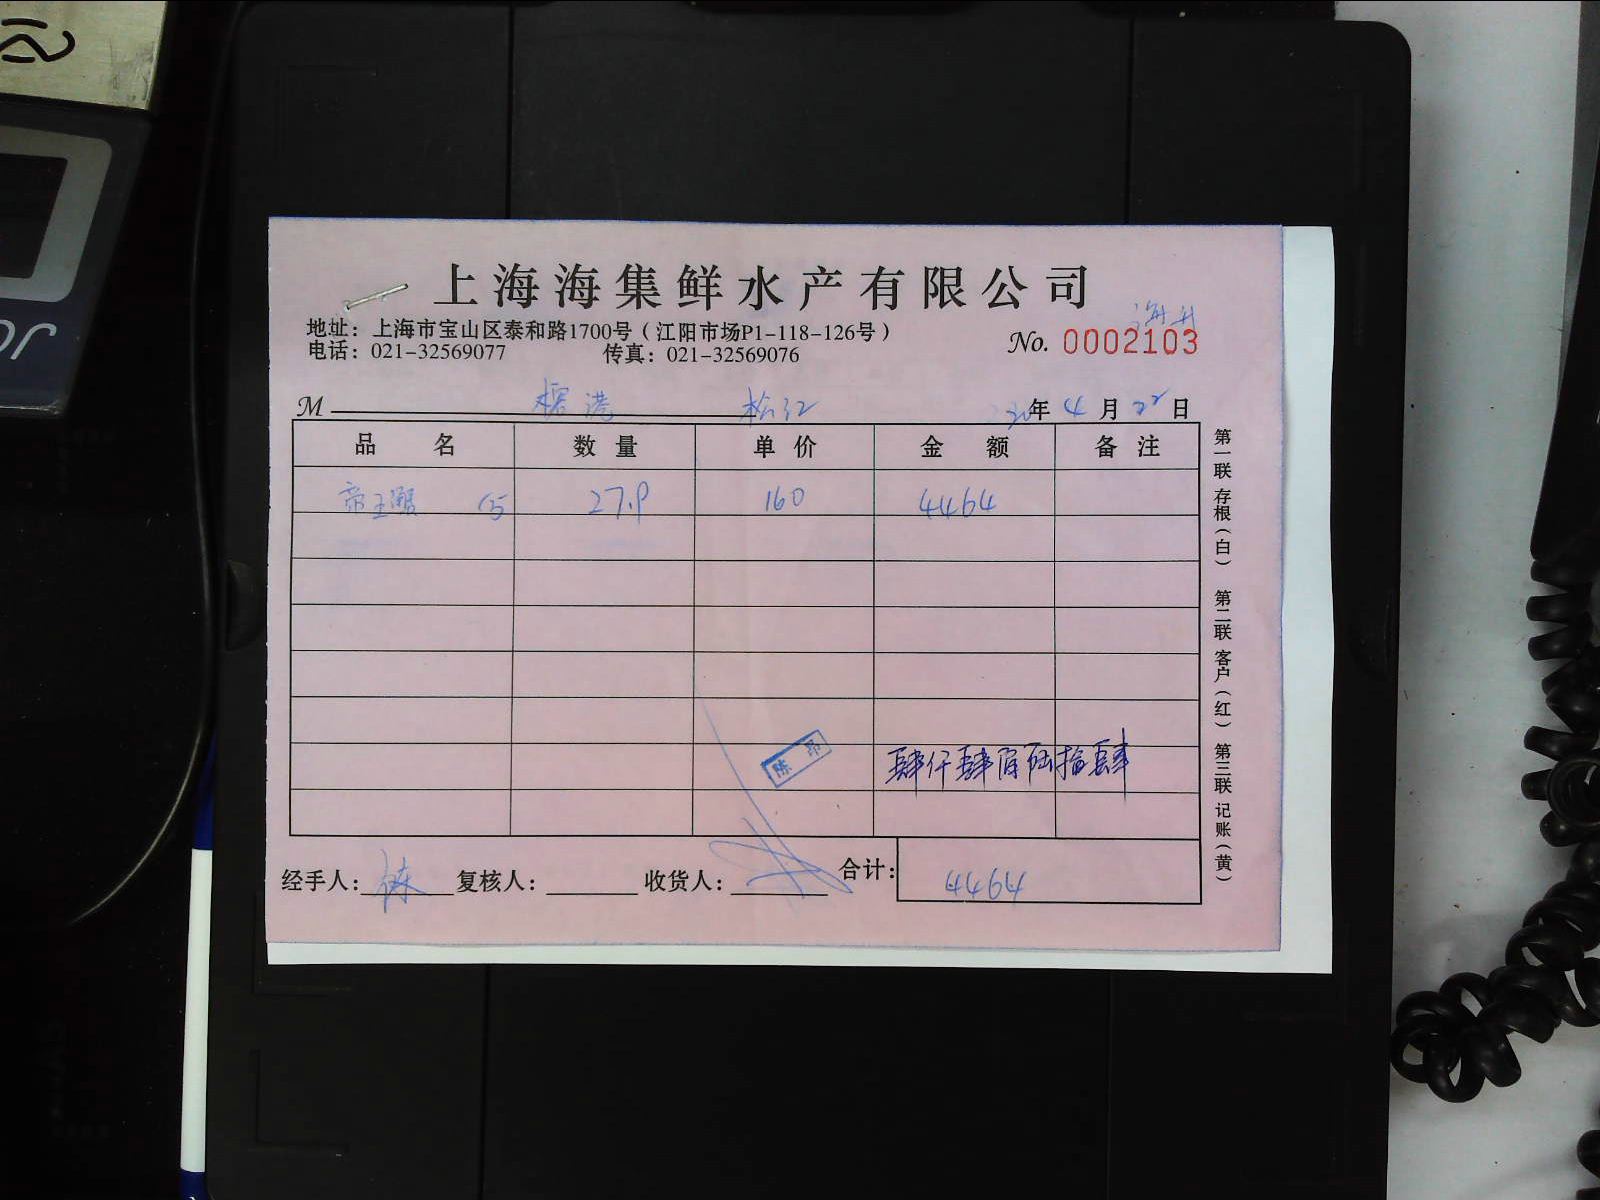 上海海集鲜水产有限公司
地址：上海市宝山区泰和路1700号（江阳市场P1-118-126号）
电话：021-32569077 传真：021-32569076
No. 0002103
M 松江 年 4 月 22 日
品名 数量 单价 金额 备注
帝王蟹 27.9 160 4464
陈
肆仟肆佰陆拾肆
经手人： 复核人： 收货人： 合计： 4464
第一联 存根（白） 第二联 客户（红） 第三联 记账（黄）